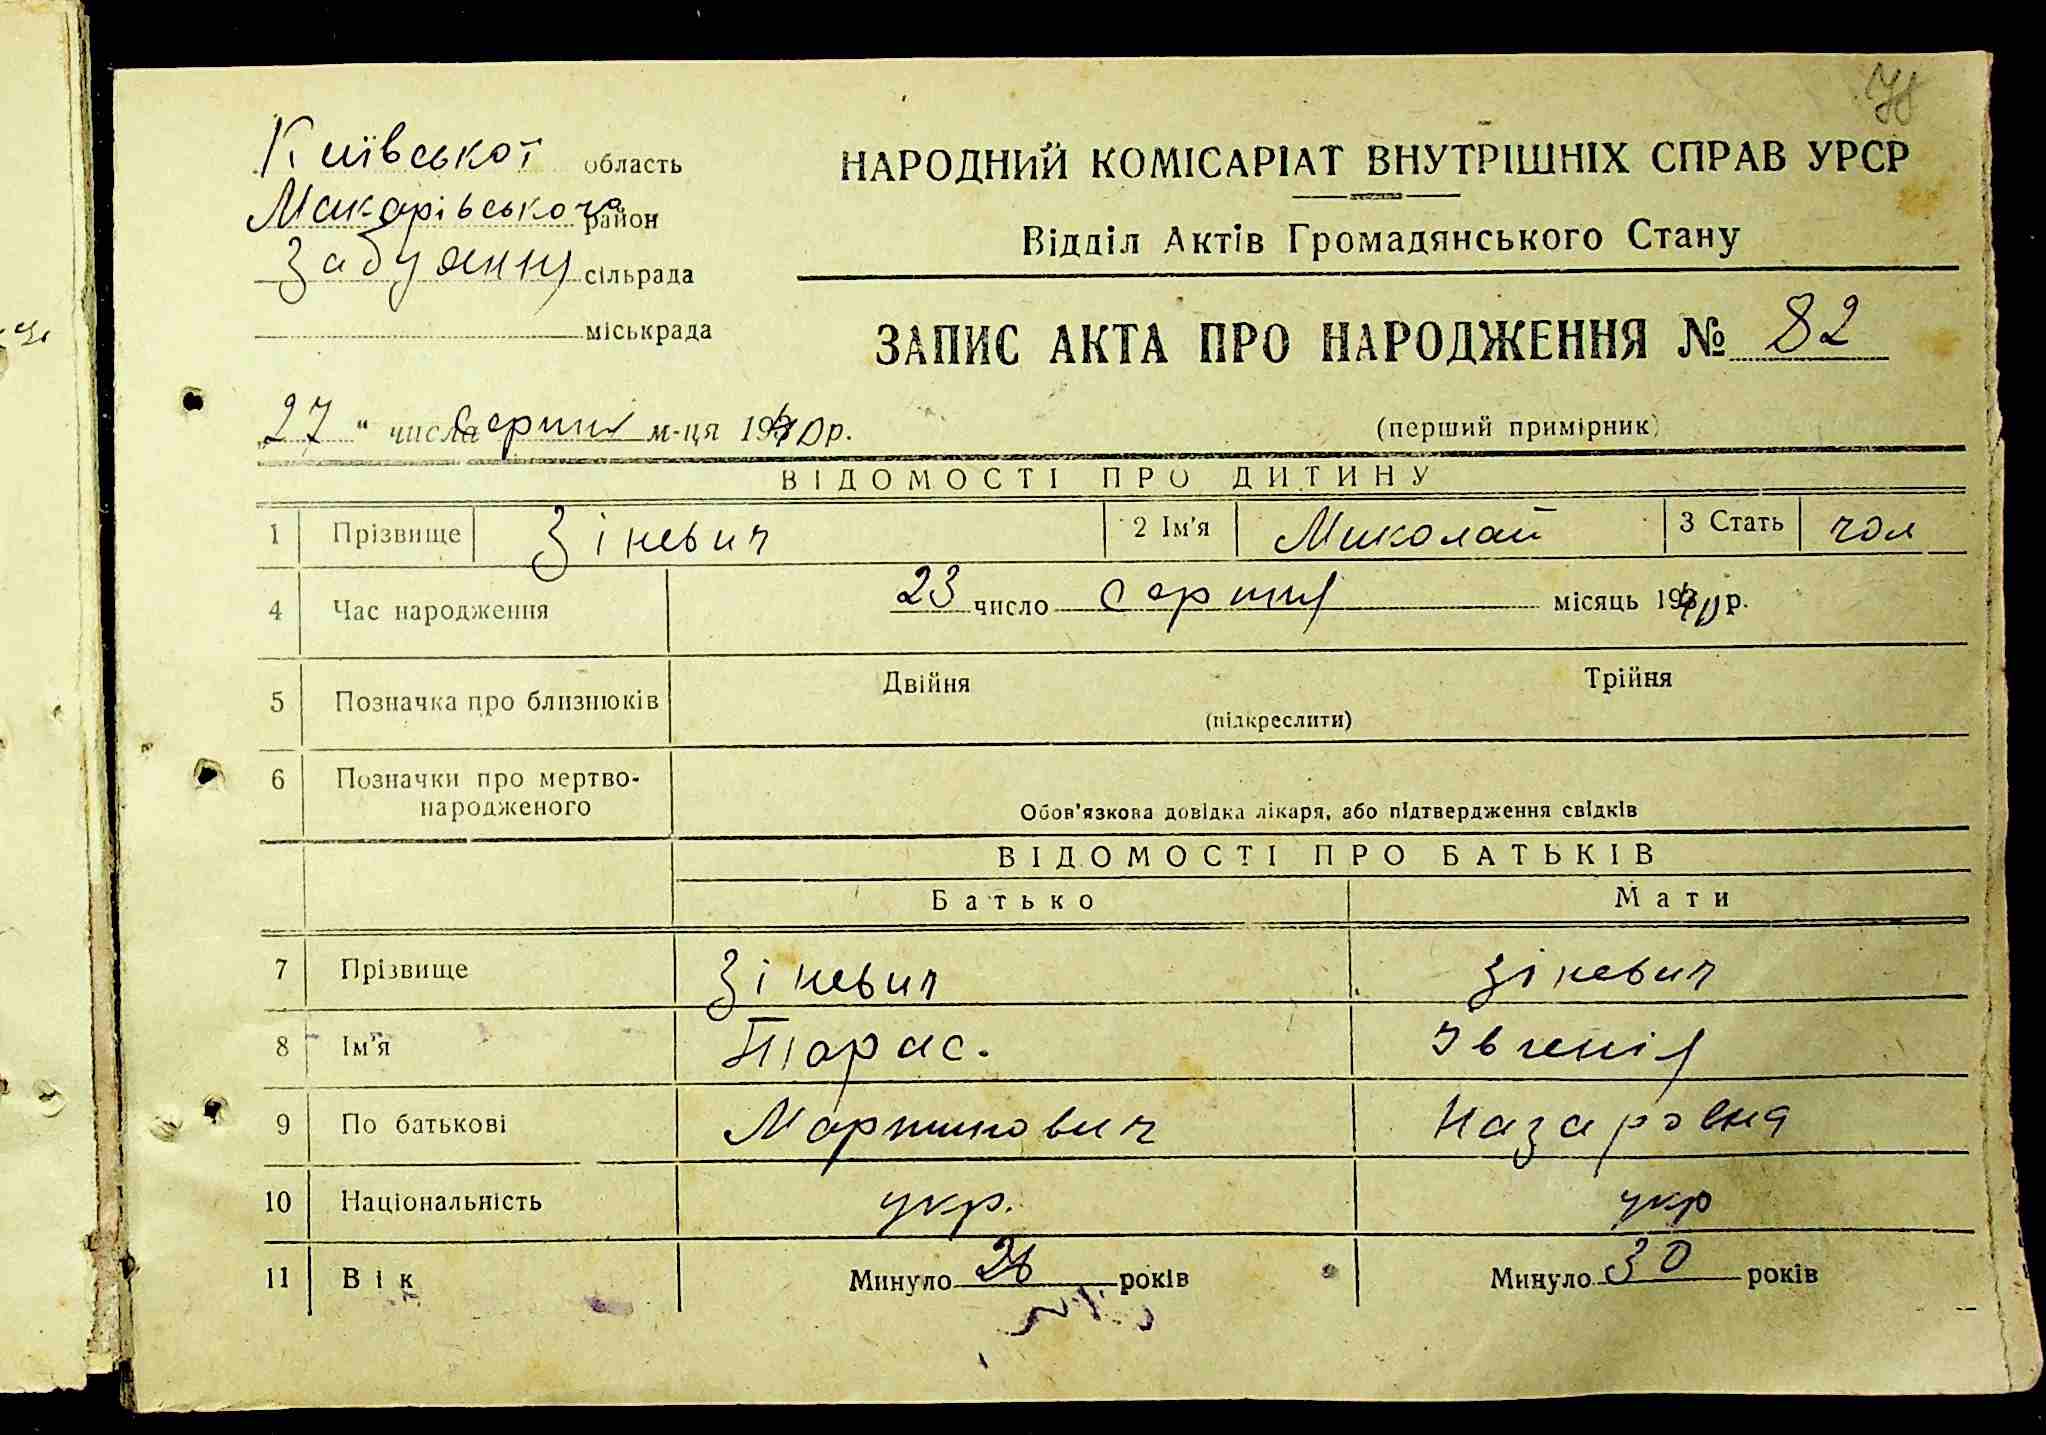 Київської область
Макарівського район
Забуянню сільрада
міськрада
НАРОДНИЙ КОМІСАРІАТ ВНУТРІШНІХ СПРАВ УРСР
Відділ Актів Громадянського Стану
ЗАПИС АКТА ПРО НАРОДЖЕННЯ № 82
„27" числа Серпня м-ця 1940 р.
(перший примірник)
ВІДОМОСТІ ПРО ДИТИНУ
1 Прізвище Зіневич 2 Ім'я Миколай 3 Стать чол
4 Час народження 23 число серпня місяць 1940 р.
5 Позначка про близнюків Двійня Трійня
(підкреслити)
6 Позначки про мертво-
народженого
Обов'язкова довідка лікаря, або підтвердження свідків
ВІДОМОСТІ ПРО БАТЬКІВ
Батько Мати
7 Прізвище Зіневич Зіневич
8 Ім'я Тарас. Івгенія
9 По батькові Мартинович Назаровна
10 Національність укр. укр
11 Вік Минуло років Минуло 30 років